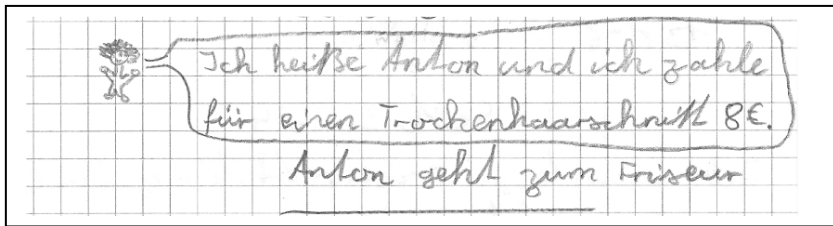 Ich heiße Anton und ich zahle
für einen Trockenhaarschnitt 8€.
Anton geht zum Friseur